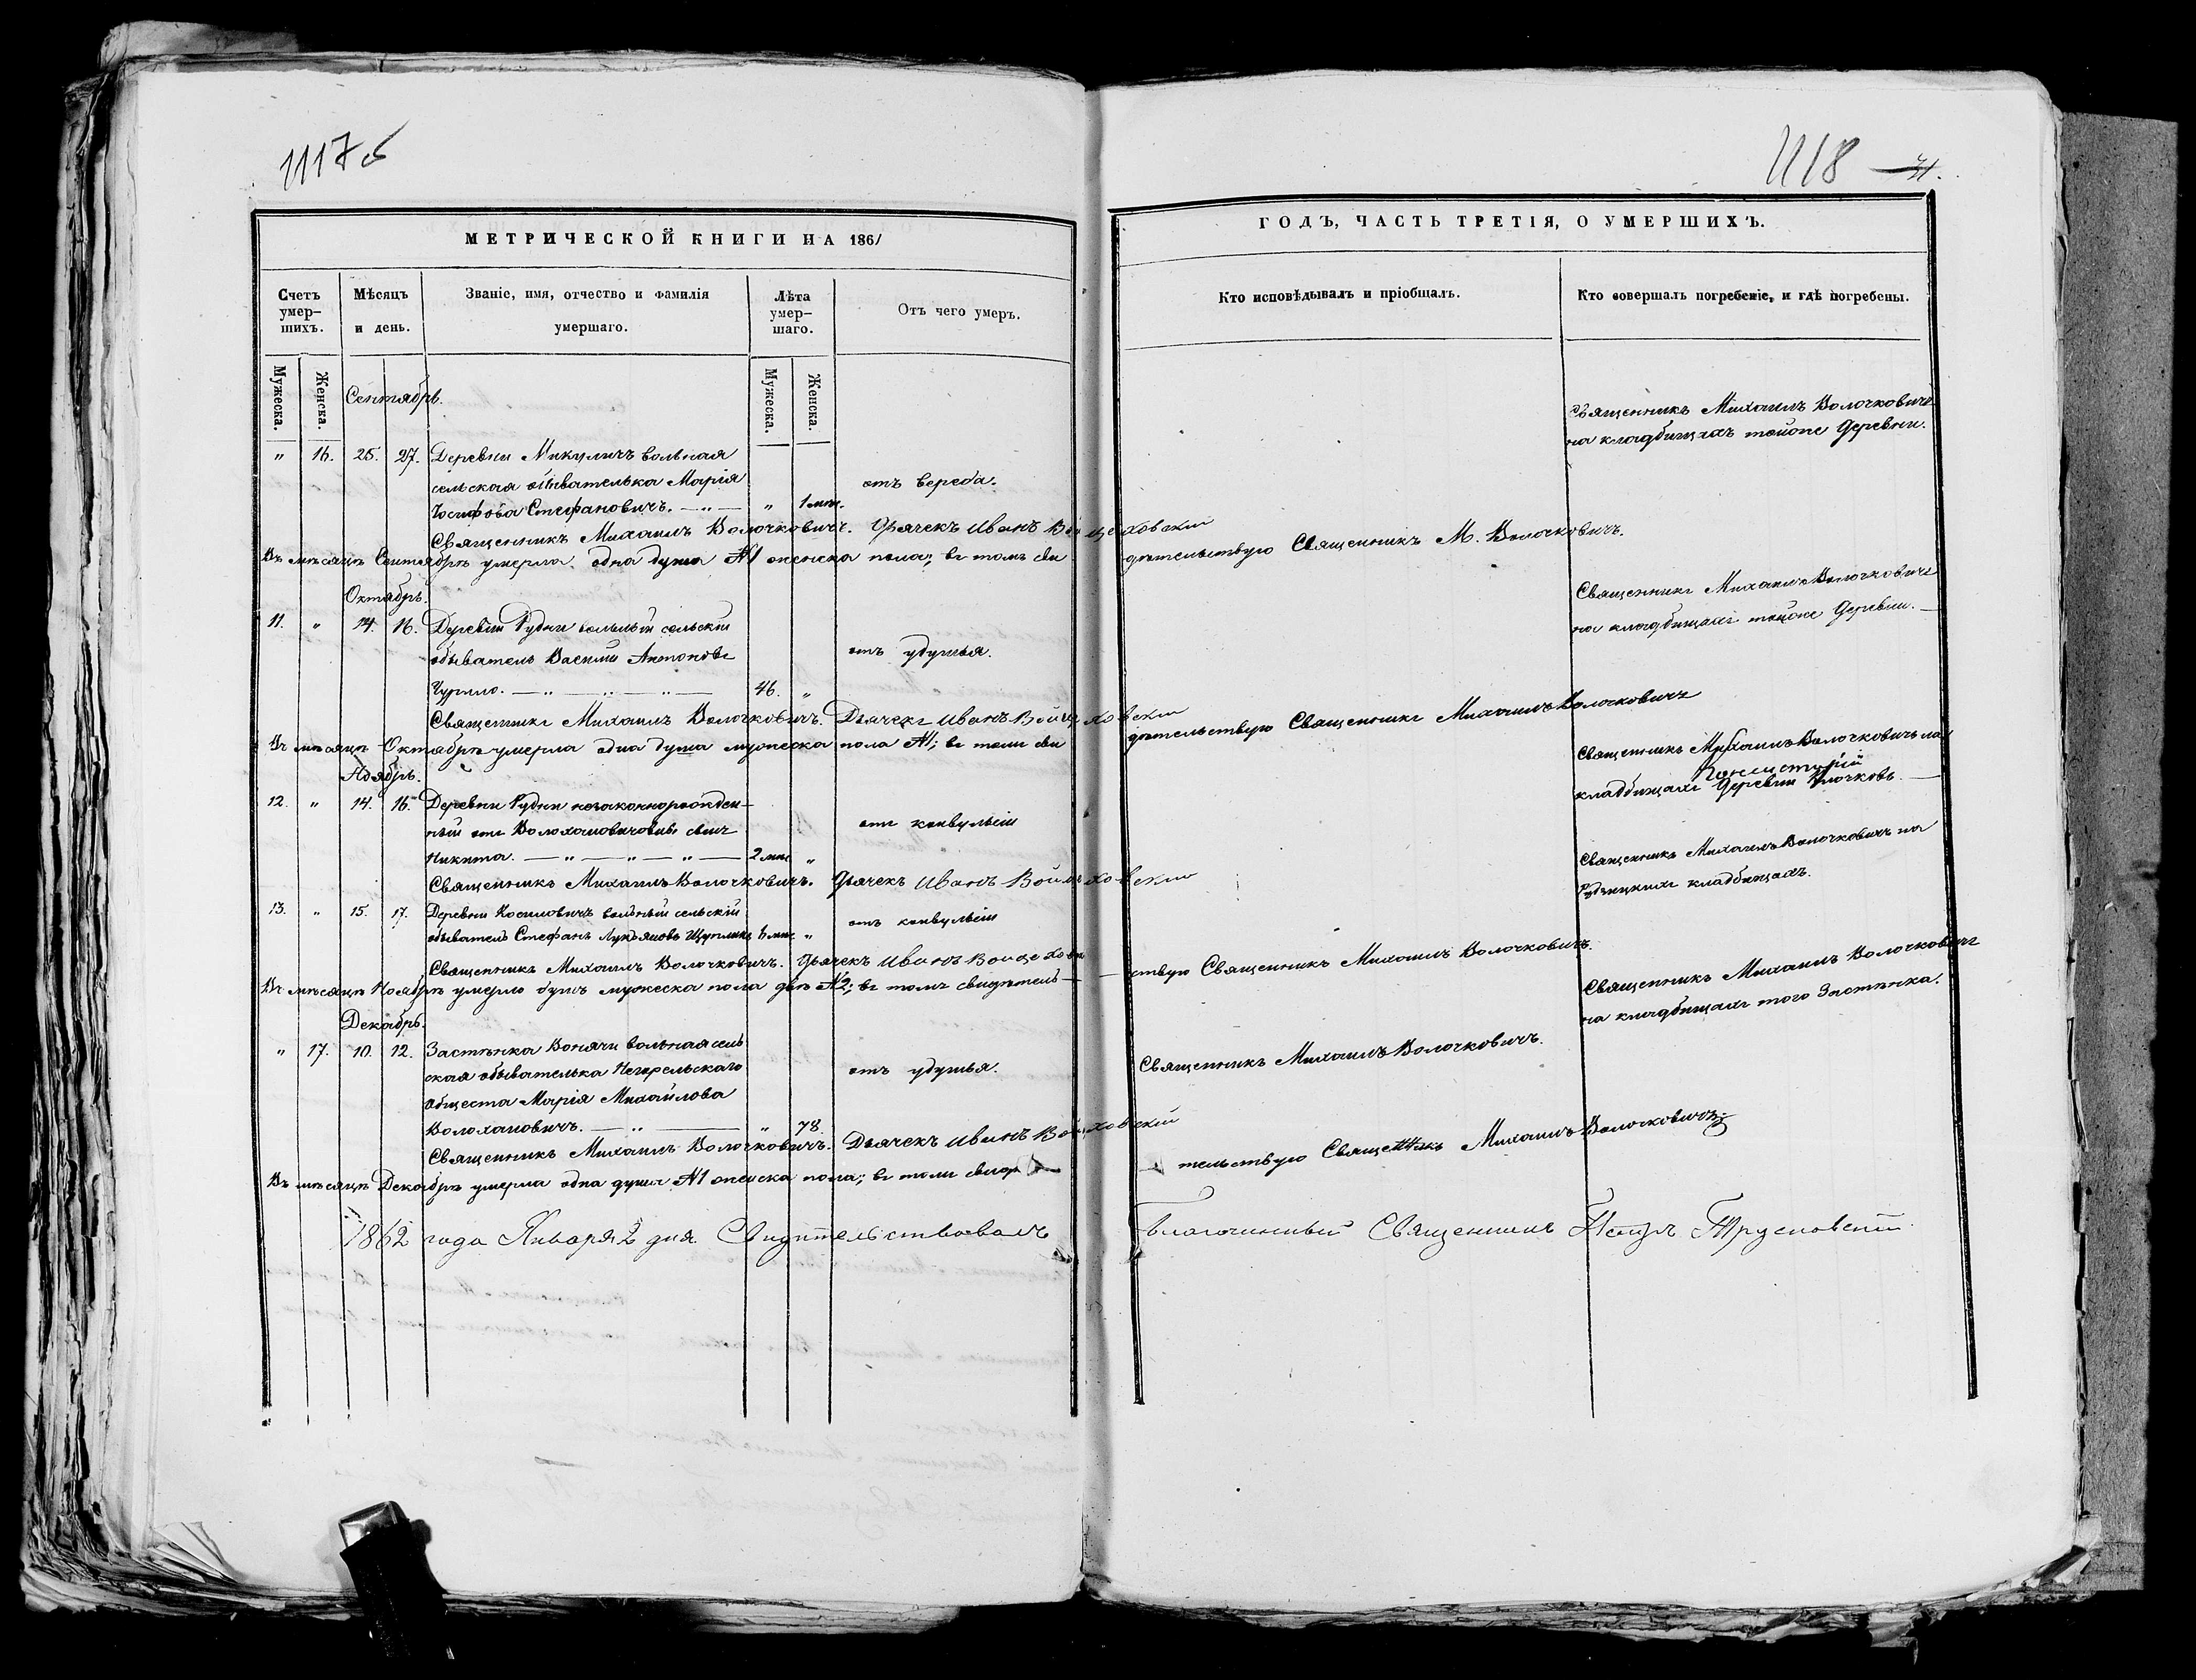 1117об
1118
МЕТРИЧЕСКОЙ КНИГИ НА 1861
ГОДЪ, ЧАСТЬ ТРЕТІЯ, О УМЕРШИХЪ.
Счетъ умер-шихъ.
Мѣсяцъ и день.
Званіе, имя, отчество и фамилія умершаго.
Лѣта умер-шаго.
Отъ чего умеръ.
Кто исповѣдывалъ и пріобщалъ.
Кто совершалъ погребеніе, и гдѣ погребены.
Мужеска.
Женска.
Мужеска.
Женска.
Сентябрь.
" 16. 25. 27. Деревни Микуличъ вольная
сельская обывателька Марія
отъ вереда.
Іосифова Стефановичъ. — " — " 1 мѣс.
Священникъ Михаилъ Волочковичъ
на кладбищахъ тойже Деревни.
Священникъ Михаилъ Волочковичъ. Дьячекъ Иванъ Войцеховскій
Въ мѣсяцѣ Сентябрѣ умерла одна душа №1 женска пола; въ томъ сви
дѣтельствую Священникъ М. Волочковичъ.
Октябрь.
11. " 14. 16. Деревни Рудни вольный сельскій
обыватель Василій Антоновъ
отъ удушья.
Чурило. — " — " — " — 46. "
Священникъ Михаилъ Волочковичъ
на кладбищахъ тойже Деревни. —
Священникъ Михаилъ Волочковичъ. Дьячекъ Иванъ Войцеховскій
Въ мѣсяцѣ Октябрѣ умерла одна душа мужеска пола №1; въ томъ сви
дѣтельствую Священникъ Михаилъ Волочковичъ
Ноябрь.
12. " 14. 16. Деревни Рудни незаконнорожден-
ный отъ
сынъ
отъ конвульсіи
Никита. — " — " — " — 2 мѣс. "
Священникъ Михаилъ Волочковичъ на
кладбищахъ Деревни
Священникъ Михаилъ Волочковичъ. Дьячекъ Иванъ Войцеховскій
13. " 15. 17. Деревни
вольный сельскій
отъ конвульсіи
обыватель Стефанъ Лукьяновъ
6 мѣс. "
Священникъ Михаилъ Волочковичъ на
кладбищахъ.
Священникъ Михаилъ Волочковичъ. Дьячекъ Иванъ Войцеховскій
Въ мѣсяцѣ Ноябрѣ умерло душъ мужеска пола двѣ №2; въ томъ свидѣтель—
—ствую Священникъ Михаилъ Волочковичъ.
Декабрь.
" 17. 10. 12. Застѣнка Вонячи вольная сель
ская обывателька Негорельскаго
отъ удушья.
общества Марія Михайлова
Волохановичъ. — " — " 78.
Священникъ Михаилъ Волочковичъ.
Священникъ Михаилъ Волочковичъ
на кладбищахъ того Застѣнка.
Священникъ Михаилъ Волочковичъ. Дьячекъ Иванъ Войцеховскій
Въ мѣсяцѣ Декабрѣ умерла одна душа №1 женска пола; въ томъ свидѣ
— тельствую Священникъ Михаилъ Волочковичъ
1862 года Января 2 дня Свидѣтельствовалъ
Благочинный Священникъ Петръ